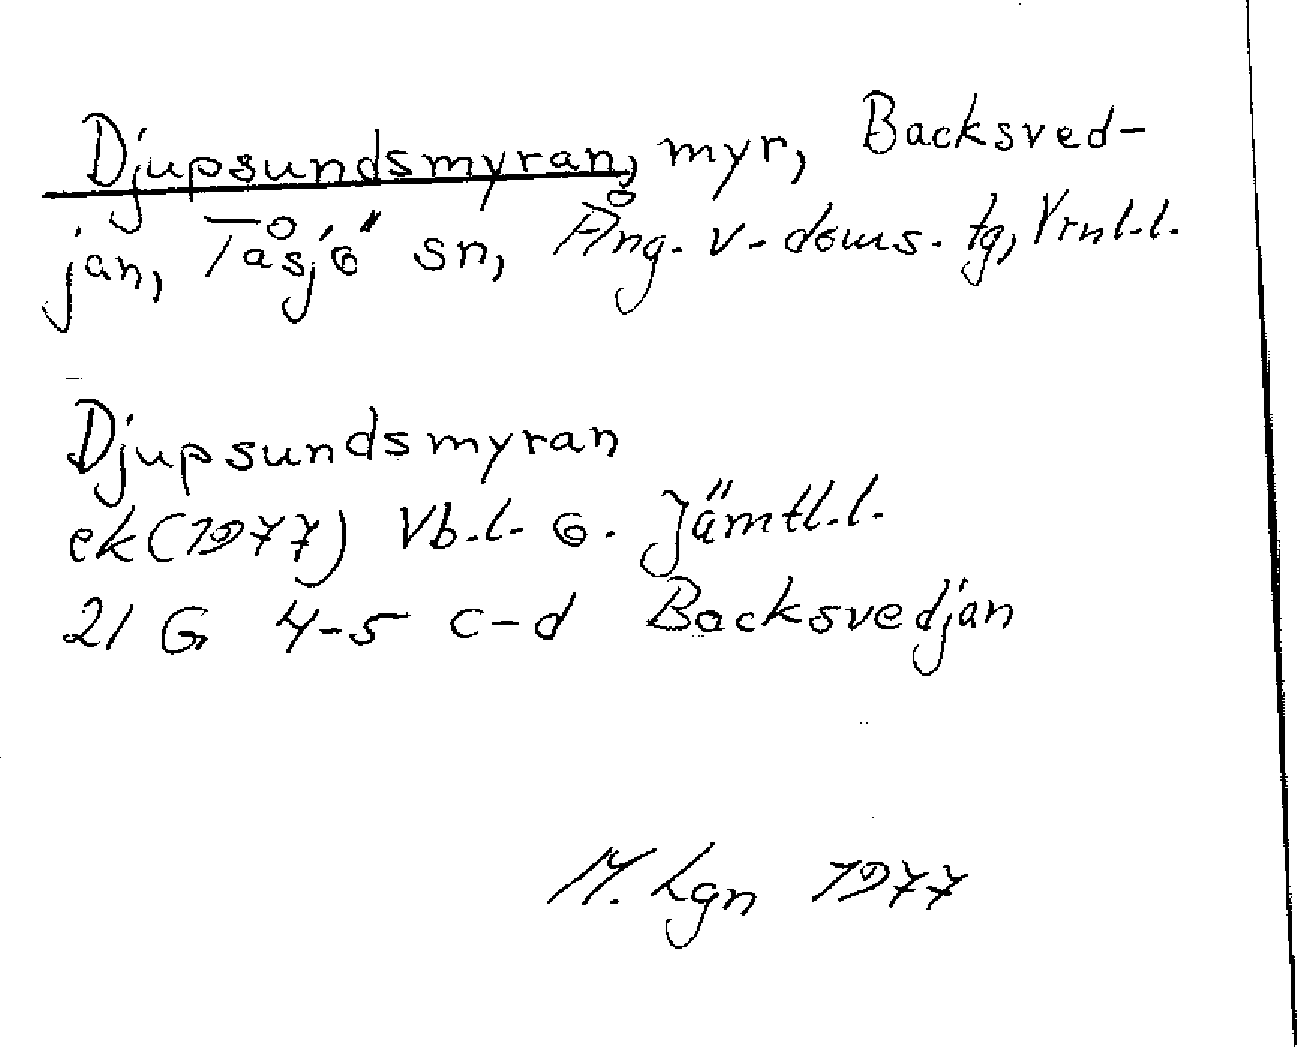 Djupsundsmyran, myr, Backsved-
jan, Tåsjö sn, Ång. v. doms. tg, Vrnl.l.
Djupsundsmyran
ek (1977) Vb.l. o. Jämtl.l.
21 G 4-5 c-d Backsvedjan
M. Lgn 1977